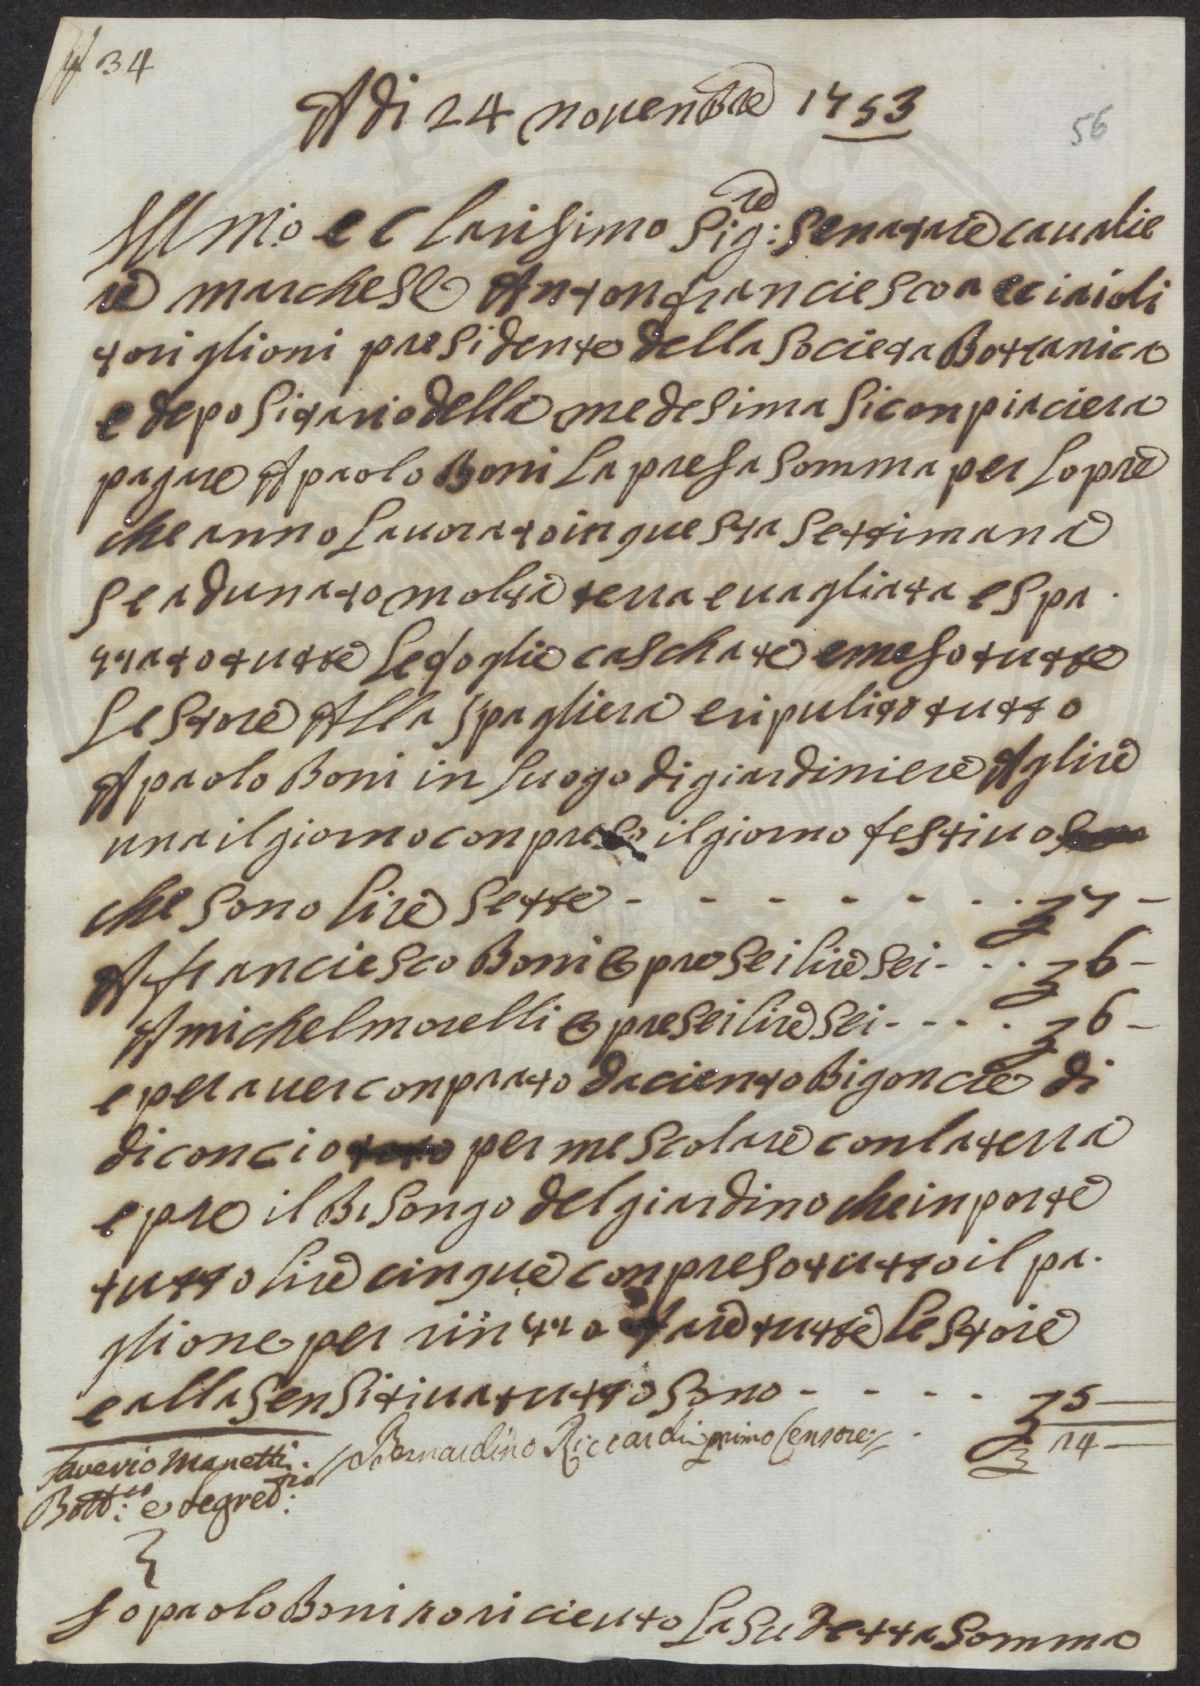 N 34
Adi 24 novenbre 1753
56
Illmo e clarisimo Sig:re Senatare caualie
re marchese Antonfranciesco acciaioli
toriglioni presidente della Societa Botanica
e depositario della medesima si conpiaciera
pagare A paolo Boni la presa somma per lopre
che anno lauorato in questa settimana
se adunato molta terra e uagliata e spa
zzato tutte le foglie caschate e meso tutte
le store Alla spagliera e ripulito tutto
A paolo Boni in luogo di giardiniere A lire
una il giorno conpreso il giorno festiuo
che sono lire sette - - - - - - - £ 7 -
A franciesco Boni Opre sei lire sei - - - £ 6 -
A michel morelli Opre sei lire sei - - - - £ 6 -
e per auer conprato da ciento bigoncie di
di concio per mescolare con la terra
e pre il bisongo del giardino che inporte
tutto lire cinque conpreso tutto il pa
glione per rinzzafare tutte le store
e alla sensitiua tutto sono - - - - £ 5 -
£ 24 -
Saverio Manetti
Bott:co e Segred:rio
Bernardino Riccardi primo Censore
Io paolo Boni o ricieuto la sudetta somma